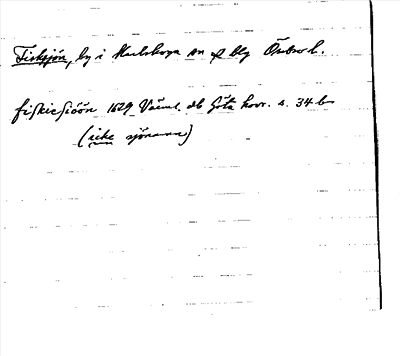 Fisksjön, by i Karlskoga sn o blg Örebro l.
fiskiesiöön 1629 Värml. db Göta hovr. s. 34 b
(icke sjönamn)